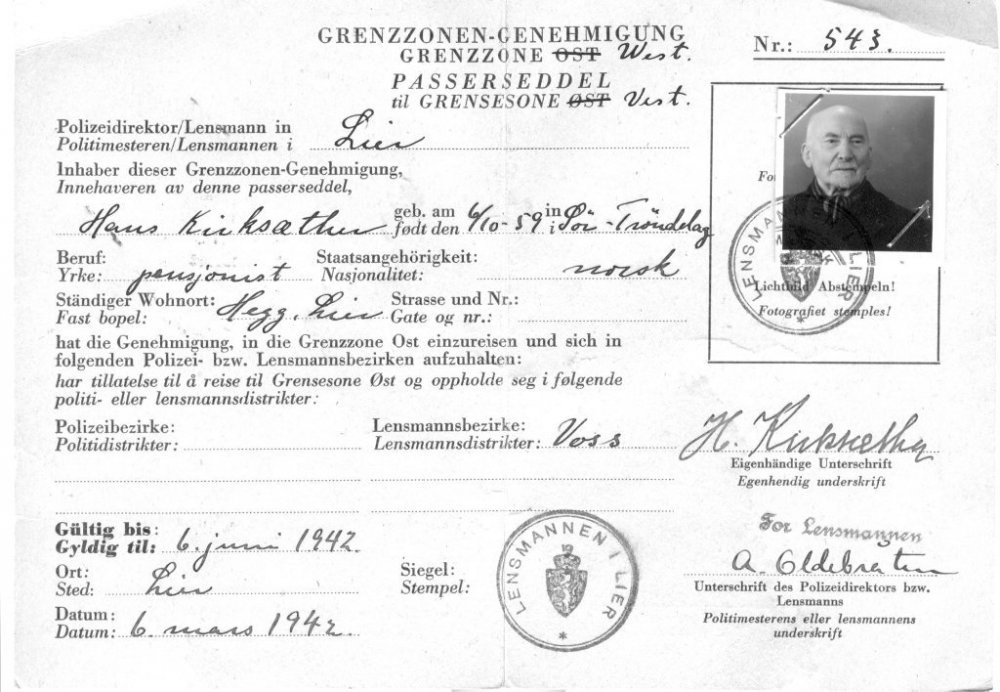 GRENZZONEN-GENEHMIGUNG
GRENZZONE OST West.
PASSERSEDDEL
til GRENSESONE ØST Vest.
Nr.: 543.
Polizeidirektor/Lensmann in
Politimesteren/Lensmannen i Lier
Inhaber dieser Grenzzonen-Genehmigung,
Innehaveren av denne passerseddel,
Hans Kirksæther geb. am født den 6/10-59 in i Sör-Tröndelag
Beruf:
Yrke: pensjonist
Staatsangehörigkeit:
Nasjonalitet: norsk
Ständiger Wohnort:
Fast bopel: Hegg, Lier
Strasse und Nr.:
Gate og nr.:
hat die Genehmigung, in die Grenzzone Ost einzureisen und sich in
folgenden Polizei- bzw. Lensmannsbezirken aufzuhalten:
har tillatelse til å reise til Grensesone Øst og oppholde seg i følgende
politi- eller lensmannsdistrikter:
Polizeibezirke:
Politidistrikter:
Lensmannsbezirke:
Lensmannsdistrikter: Voss
Gültig bis:
Gyldig til: 6. juni 1942.
Ort:
Sted: Lier
Datum:
Datum: 6. mars 1942.
Siegel:
Stempel:
LENSMANNEN I LIER
Fo
LENSMANN LIER
Lichtbild Abstempeln!
Fotografiet stemples!
H. Kirksæther
Eigenhändige Unterschrift
Egenhendig underskrift
For Lensmannen
A. Oldebraten
Unterschrift des Polizeidirektors bzw.
Lensmanns
Politimesterens eller lensmannens
underskrift